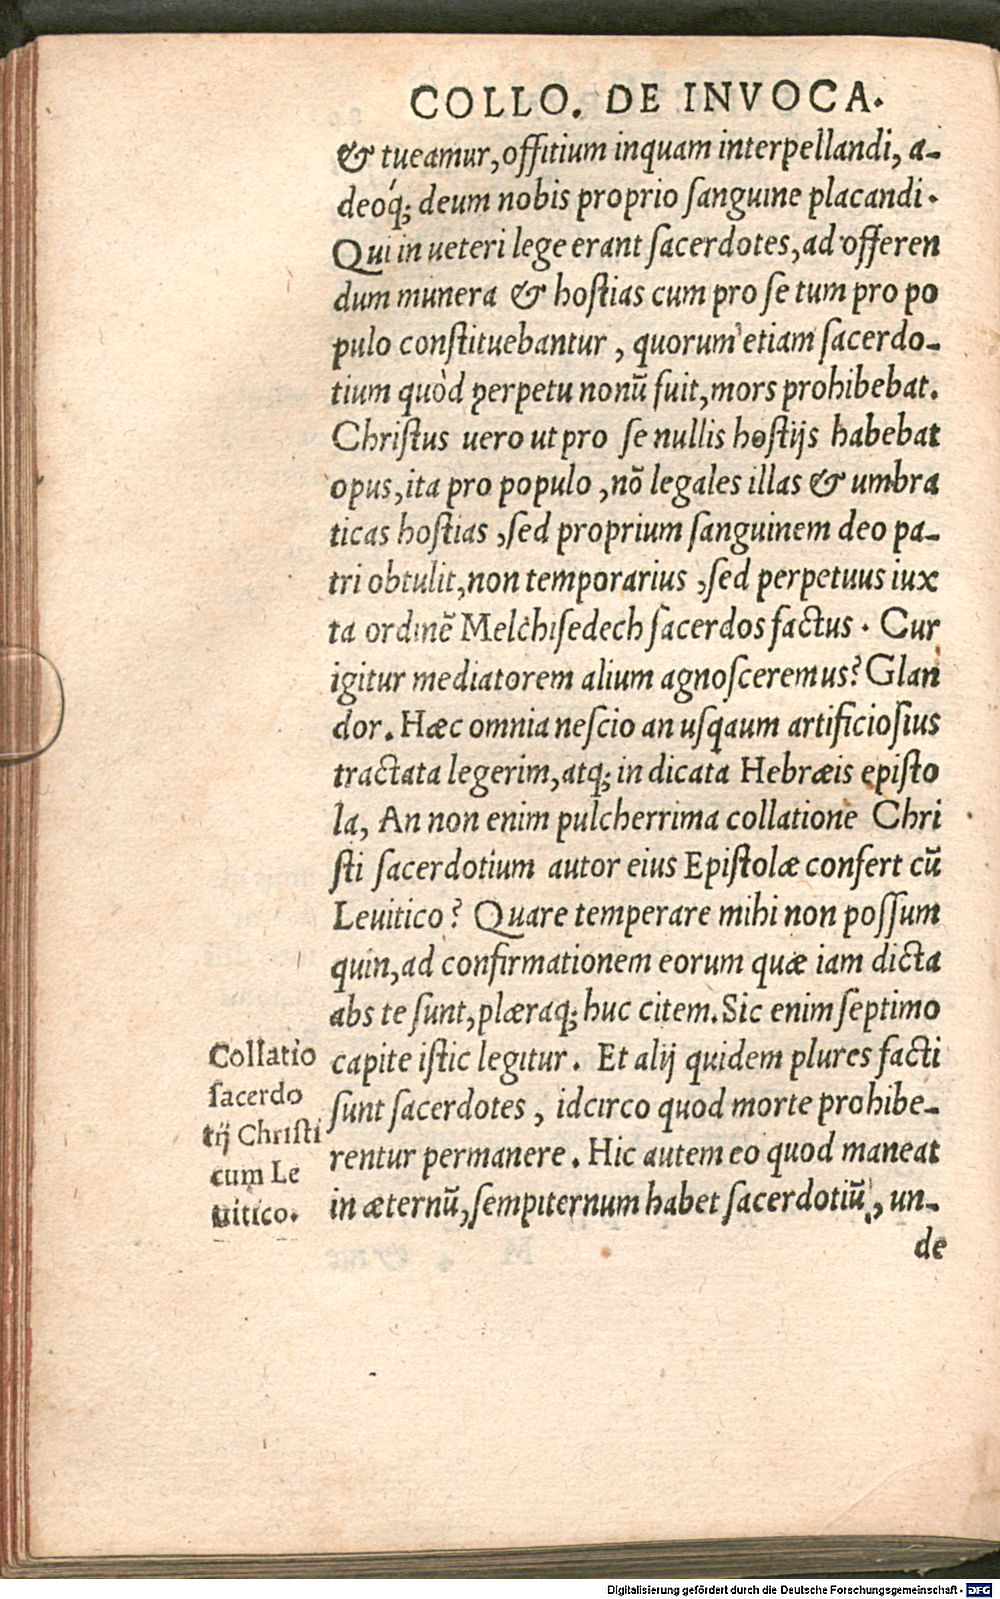 COLLO. DE INVOCA.
& tueamur, offitium inquam interpellandi, a-
deóq; deum nobis proprio ſanguine placandi.
Qui in ueteri lege erant ſacerdotes, ad offeren
dum munera & hoſtias cum pro ſe tum pro po
pulo conſtituebantur, quorum etiam ſacerdo-
tium quòd perpetu nonũ fuit, mors prohibebat.
Chriſtus uero ut pro ſe nullis hoſtijs habebat
opus, ita pro populo, nõ legales illas & umbra
ticas hoſtias, ſed proprium ſanguinem deo pa-
tri obtulit, non temporarius, ſed perpetuus iux
ta ordinẽ Melchiſedech ſacerdos factus. Cur
igitur mediatorem alium agnoſceremus? Glan
dor. Hæc omnia neſcio an uſqaum artificioſius
tractata legerim, atq; in dicata Hebræis epiſto
la, An non enim pulcherrima collatione Chri
ſti ſacerdotium autor eius Epiſtolæ confert cũ
Leuitico? Quare temperare mihi non poſſum
quin, ad confirmationem eorum quæ iam dicta
abs te ſunt, plæraq; huc citem. Sic enim ſeptimo
capite iſtic legitur. Et alij quidem plures facti
ſunt ſacerdotes, idcirco quod morte prohibe-
rentur permanere. Hic autem eo quod maneat
in æternũ, ſempiternum habet ſacerdotiũ, un-
de
Collatio
ſacerdo
tij Chriſti
cum Le
uitico.
Digitalisierung gefördert durch die Deutsche Forschungsgemeinschaft - DFG